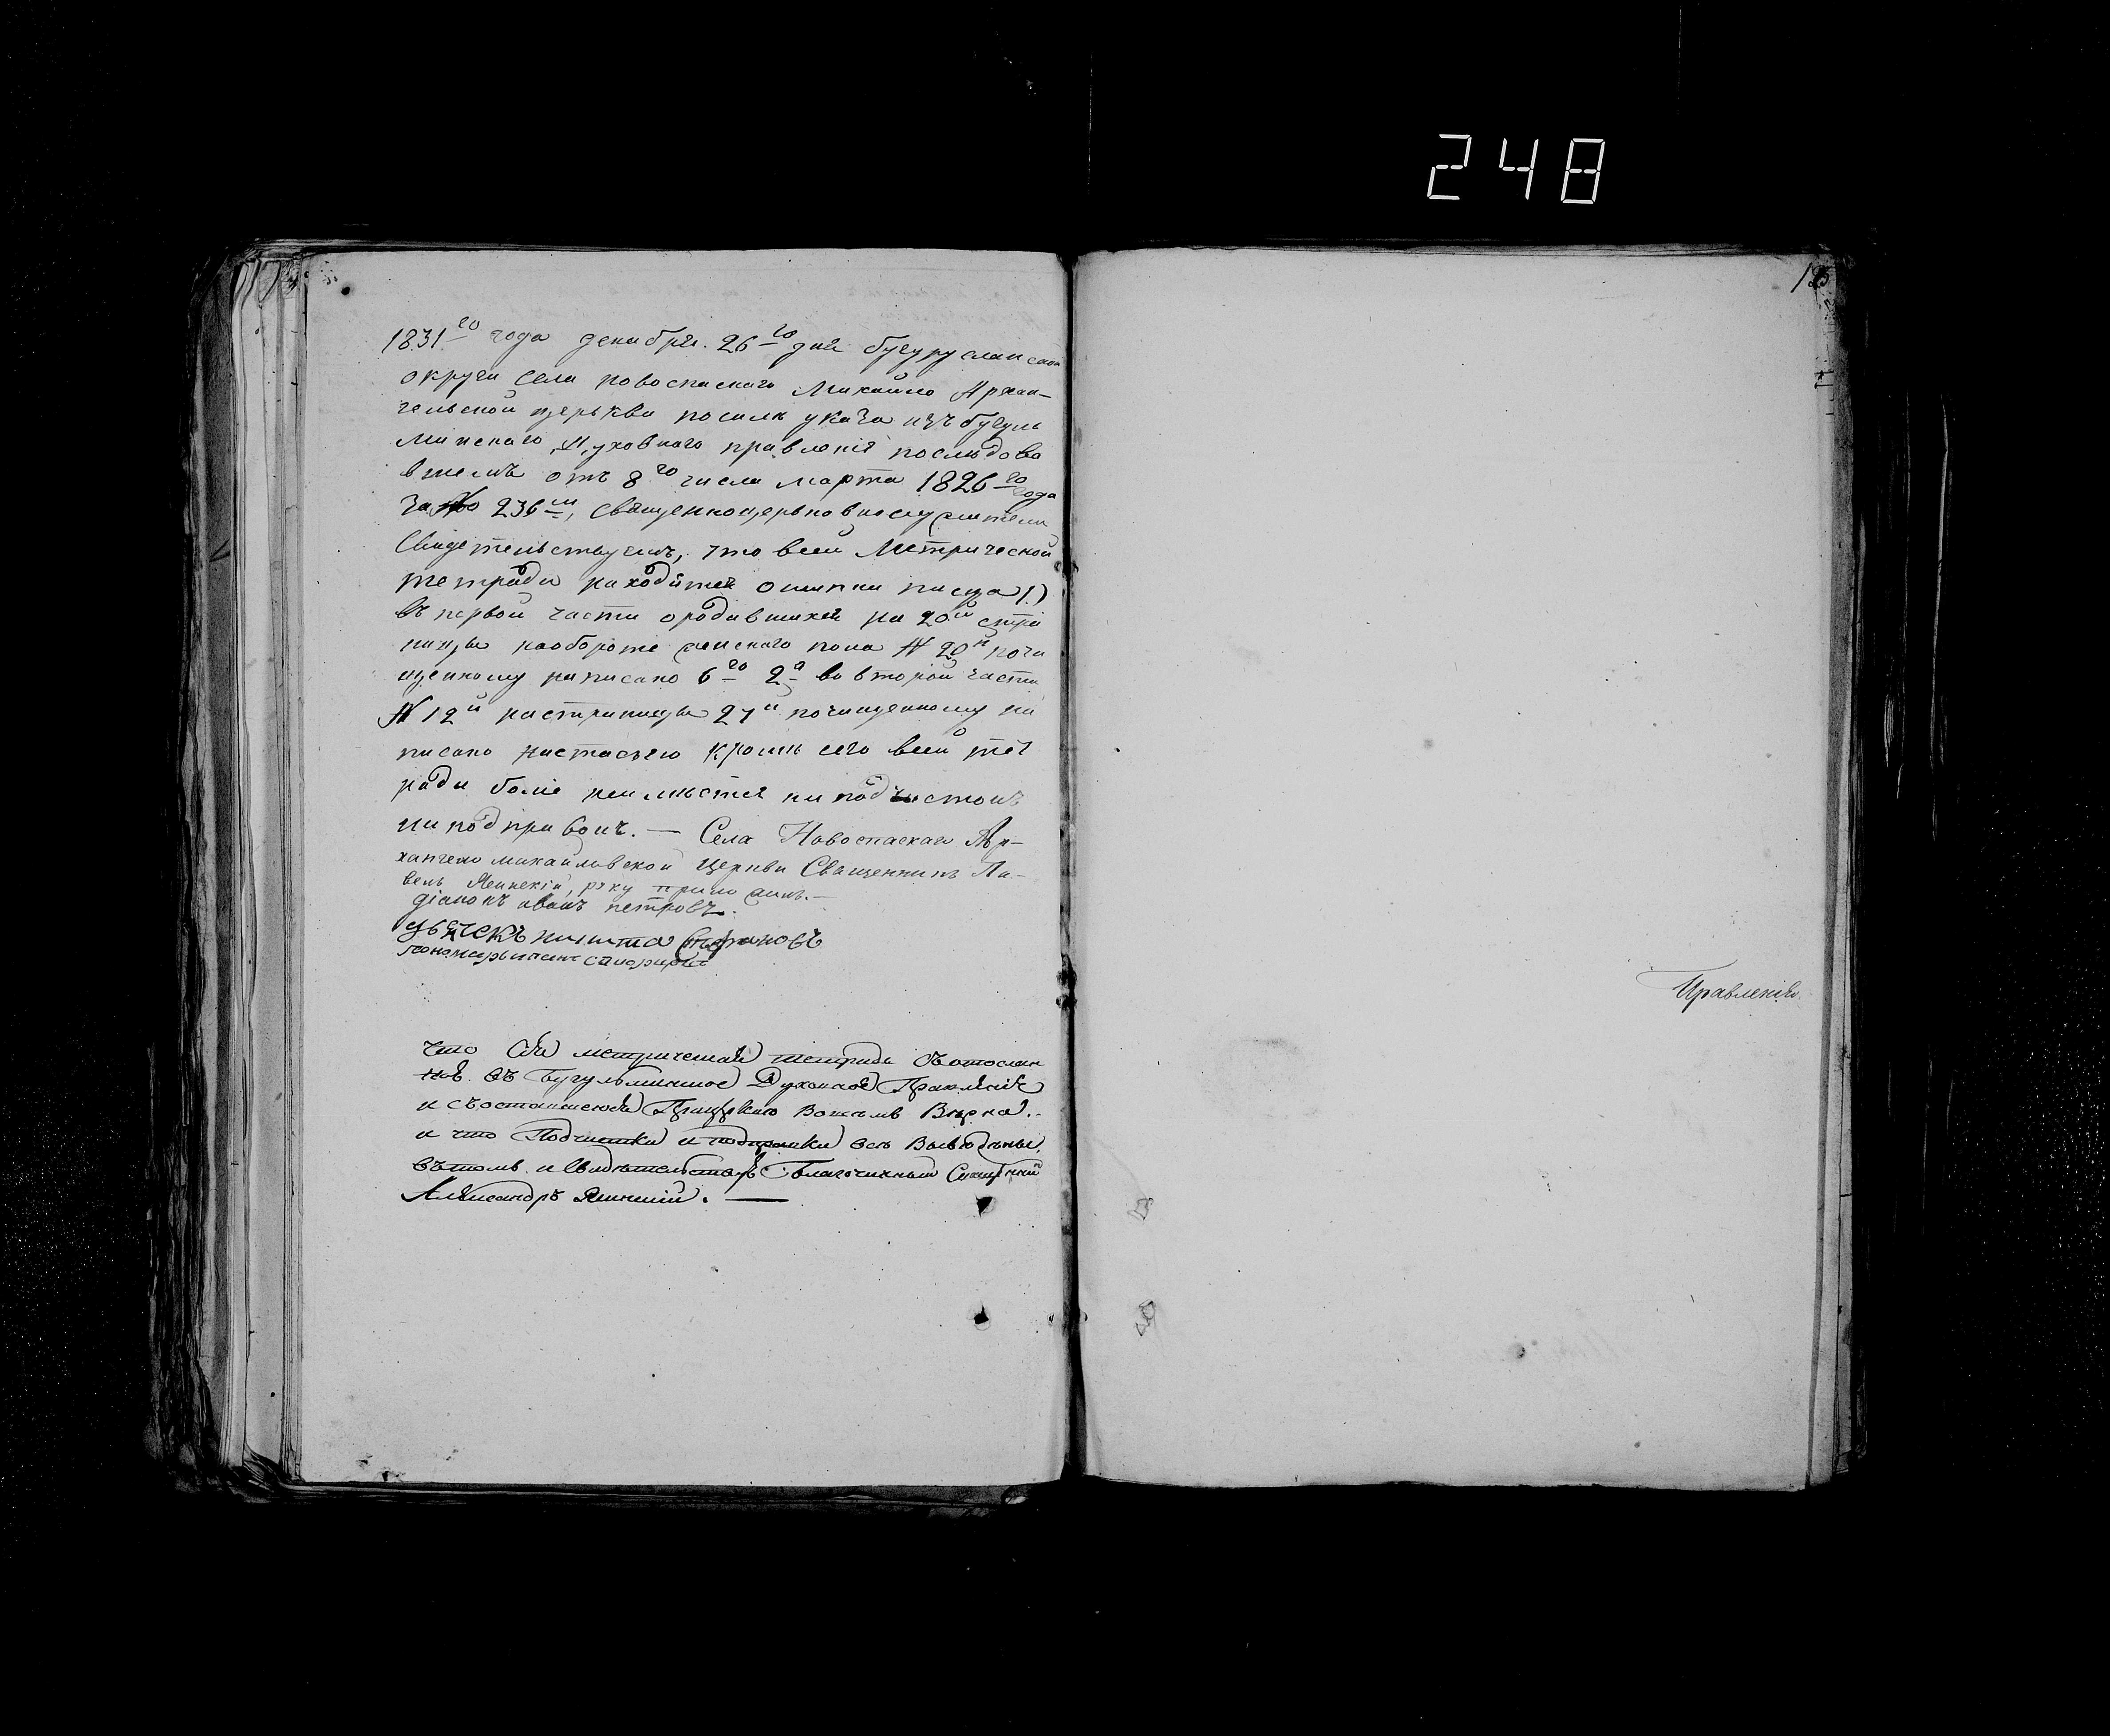 248
1831го года декабря. 26го дня бугурусланской
округи села новоспаскаго Михайло Архан-
гельской церькви посилѣ указа изъ бугуль
минскаго Духовнаго правленія последова
вшемъ отъ 8го числа марта 1826го года
за № 236м, священноцерьковнослужители
Свидетельствуемъ, что всей Метрической
тетради находятся ошипки писца 1)
въ первой части ородившихся на 20й стра
ницы наобороте женского пола № 20й почи
щенному написано 6го 2я во второй части
№ 12й настраницы 27й почищенному на
писано настасью кромѣ сего всей тет
ради болѣе неимѣется ни подчистокъ
ни подправокъ. — Села Новоспаскаго Ар-
хангело михайловской церкви Священникъ Па-
велъ Ясинскій, руку приложилъ.—
діаконъ иванъ петровъ.
дьячекъ никита Стефановъ
пономарь
что Сія метрическая тетрадь
въ Бугульминское Духовное Правленіе
и
и что Подчистки и подправки
въ томъ и свидѣтельствую Благочинный Священникъ
Александръ Ясинскій. —
Правленію